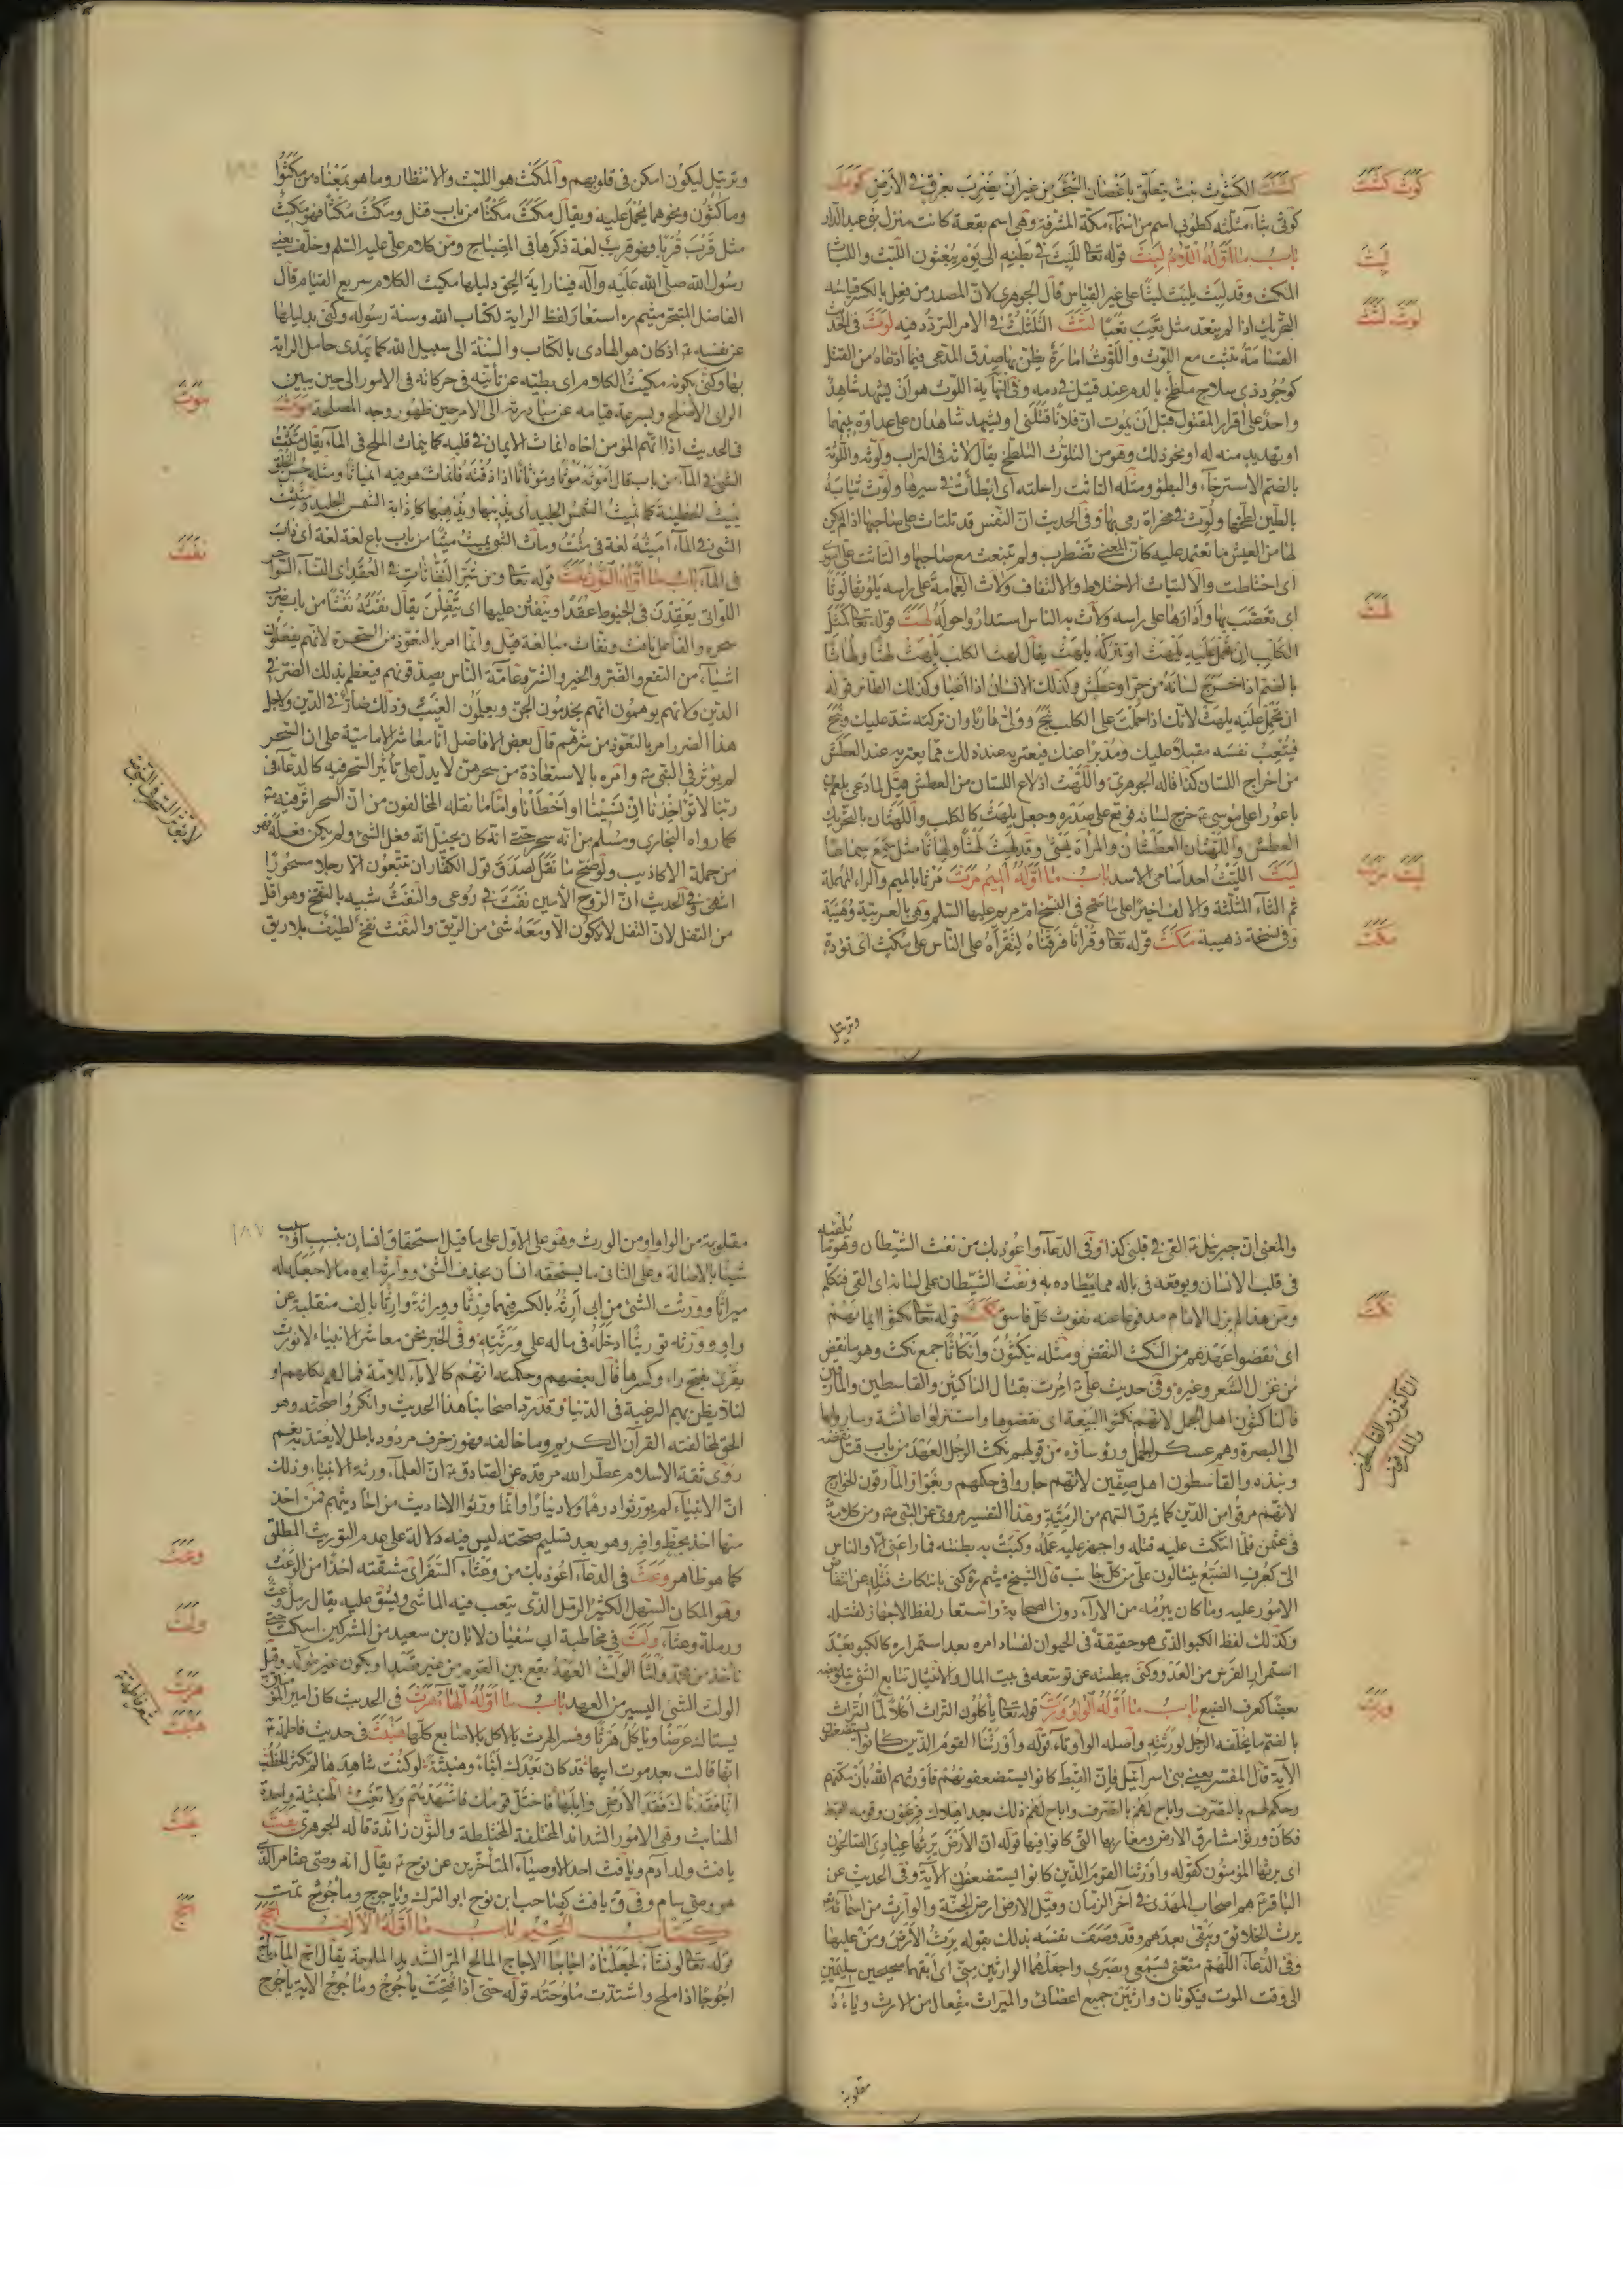 كشث الكشوث نبت يتعلق باغصان الشجر من غير ان يضرب بعرق في الارض كوث
كوثى بثاء مثلثة كطوبى اسم من اسماء مكة المشرفة وهي اسم بقعة كانت منزل بني عبد الدار
باب ما اوله اللام لبث قوله تعالى للبث في بطنه الى يوم يبعثون اللبث واللباث
المكث وقد لبث يلبث لبثا على غير القياس قال الجوهري لان المصدر من فعل بالكسر قياسه
التحريك اذا لم يتعد مثل تعب تعبا لثث التلثلث في الامر التردد فيه لوث في الحديث
القسامة تثبت مع اللوث واللوث امارة يظن بها صدق المدعى فيما ادعاه من القتل
كوجود ذي سلاح ملطخ بالدم عند قتيل في دمه وفي النهاية اللوث هو ان يشهد شاهد
واحد على اقرار المقتول قبل ان يموت ان فلانا قتلني او يشهد شاهدان على عداوة بينهما
او تهديد منه له او نحو ذلك وهو من التلوث التلطخ يقال لاثه في التراب ولوثه واللوثة
بالضم الاسترخاء والبطؤ ومثله التاثت راحلته اي ابطأت في سيرها ولوث ثيابه
بالطين لطخها ولوث رمى بها وفي الحديث ان النفس قد تلتاث على صاحبها اذا لم يكن
لها من العيش ما تعتمد عليه كان المعنى تضطرب ولم تنبعث مع صاحبها والتاثت على
اي اختلطت والالتياث الاختلاط والالتفاف ولاث العمامة على راسه يلوثها لوثا
اي تعصب بها وادارها على راسه ولاث به الناس استداروا حوله لهث قوله تعالى كمثل
الكلب ان تحمل عليه يلهث او تتركه يلهث يقال لهث الكلب يلهث لهثا ولهاثا
بالضم اذا اخرج لسانه من حر او عطش وكذلك الانسان اذا اعيا وكذلك الطائر قوله
ان تحمل عليه يلهث لانك اذا حملت على الكلب نبح وولى هاربا وان تركته شد عليك ونبح
فيتعب نفسه مقبلا عليك ومدبرا عنك فيعتريه عند ذلك ما يعتريه عند العطش
من اخراج اللسان كذا قاله الجوهري واللهث ادلاع اللسان من العطش قيل لما دعى بلعم بن
باعورا على موسى خرج لسانه فوقع على صدره وجعل يلهث كالكلب واللهثان بالتحريك
العطش واللهثان العطشان والمرأة لهثى وقد لهث لهثا ولهاثا مثل سمع سماعا
ليث الليث احد اسامى الاسد باب ما اوله الميم مرث مرثا بالميم والراء المهملة
ثم الثاء المثلثة والالف اخيرا على ما صح في النسخ ام مريم عليها السلم وهي بالعربية وهيبة
وفي نسخة ذهيبة مكث قوله تعالى وقرانا فرقناه لتقرأه على الناس على مكث اي تؤدة
وترتيل
كوث كشث
لبث
لوث لثث
لهث
ليث مرث
مكث
وترتيل ليكون امكن في قلوبهم والمكث هو اللبث والانتظار وما هو بمعناه من مكثوا
وماكثون ونحوهما يحمل عليه ويقال مكث مكثا من باب قتل ومكث مكثا فهو مكيث
مثل قرب قربا وهو قريب لغة ذكرها في المصباح ومن كلام علي عليه السلم وخلف يعني
رسول الله صلى الله عليه وآله فينا راية الحق دليلها مكيث الكلام سريع القيام قال
الفاضل المتبحر ميثم ره استعار لفظ الراية لكتاب الله وسنة رسوله وكنى بدليلها
عن نفسه اذ كان هو الهادى بالكتاب والسنة الى سبيل الله كما يهدى حامل الراية
بها وكنى بكونه مكيث الكلام اي بطيئه عن تأنيه في حركاته في الامور الى حين يتبين
الراى الاصلح وبسرعة قيامه عن مبادرته الى الامر حين ظهور وجه المصلحة موث
في الحديث اذا اتهم المؤمن اخاه انماث الايمان في قلبه كما ينماث الملح في الماء يقال مثث
الشئ في الماء من باب قال اموثه موثا وموثانا اذا دفته فانماث هو فيه انمياثا ومثله حسن الخلق
يميث الخطيئة كما تميث الشمس الجليد اي يذيبها ويذهبها كاذابة الشمس الجليد ومثيث
الشئ في الماء اميثه لغة في مثت وماث الشئ يميث ميثا من باب باع لغة اي ذاب
في الماء باب ما اوله النون نفث قوله تعالى ومن شر النفاثات في العقد اي النساء السواحر
اللواتى يعقدن في الخيوط عقدا وينفثن عليها اي يتفلن يقال نفثه نفثا من باب ضرب
سحره والفاعل نافث ونفاث مبالغة قيل وانما امر بالتعوذ من السحرة لانهم يفعلون
اشياء من النفع والضر والخير والشر وعامة الناس يصدقونهم فيعظم بذلك الضرر في
الدين ولانهم يوهمون انهم يخدمون الجن ويعلمون الغيب وذلك ضار في الدين ولاجل
هذا الضرر امر بالتعوذ من شرهم قال بعض الافاضل انا معاشر الامامية على ان السحر
لم يؤثر في النبي وامره بالاستعاذة من سحرهن لا يدل على تأثير السحر فيه كالدعاء في
ربنا لا تؤاخذنا ان نسينا او اخطأنا واما ما نقله المخالفون من ان السحر اثر فيه
كما رواه البخاري ومسلم من انه سحر حتى انه كان يخيل انه فعل الشئ ولم يكن فعله فهو
من جملة الاكاذيب ولو صح ما نقل لصدق قول الكفار ان تتبعون الا رجلا مسحورا
انتهى وفي الحديث ان الروح الامين نفث في روعى والنفث شبيه بالنفخ وهو اقل
من التفل لان التفل لا يكون الا ومعه شئ من الريق والنفث نفخ لطيف بلا ريق
موث
نفث
والمعنى ان جبرئيل القى في قلبى كذا وفي الدعاء واعوذ بك من نفث الشيطان وهو ما يلقيه
في قلب الانسان ويوقعه في باله مما يصطاده به ونفث الشيطان على لسانه اي القى فتكلم
ومن هذا لم يزل الامام مدفوعا عنه نفوث كل فاسق نكث قوله تعالى نكثوا ايمانهم
اي نقضوا عهدهم من النكث النقض ومثله ينكثون وانكاثا جمع نكث وهو ما نقض
من غزل الشعر وغيره وفي حديث علي امرت بقتال الناكثين والقاسطين والمارقين
فالناكثون اهل الجمل لانهم نكثوا البيعة اي نقضوها واستنزلوا عائشة وساروا بها
الى البصرة وهم عسكر الجمل ورؤساؤه من قولهم نكث الرجل العهد من باب قتل نقضه
ونبذه والقاسطون اهل صفين لانهم جاروا في حكمهم وبغوا والمارقون الخوارج
لانهم مرقوا من الدين كما يمرق السهم من الرمية وهذا التفسير مروى عن النبي ومن كلامه
في عثمن فلما انتكث عليه فتله واجهز عليه عمله وكبت به بطنته فما راعنى الا والناس
الى كعرف الضبع ينثالون علي من كل جانب قال الشيخ ميثم ره كنى بانتكاث فتله عن انتقاض
الامور عليه وما كان يبرمه من الاراء دون الصحابة واستعار لفظ الاجهاز لقتله
وكذلك لفظ الكبو الذى هو حقيقة في الحيوان لفساد امره بعد استمراره كالكبو بعد
استمرار الفرس من العدو وكنى ببطنته عن توسعه في بيت المال والانثيال تتابع الشئ يتلو بعضه
بعضا كعرف الضبع باب ما اوله الواو ورث قوله تعالى يأكلون التراث اكلا لما التراث
بالضم ما يخلفه الرجل لورثته واصله الواو تاء قوله واورثنا القوم الذين كانوا يستضعفون
الآية قال المفسر يعنى بنى اسرائيل فان القبط كانوا يستضعفونهم فاورثهم الله بان مكنهم
وحكم لهم بالتصرف واباح لهم بالتصرف واباح لهم ذلك بعد اهلاك فرعون وقومه القبط
فكان ورثوا مشارق الارض ومغاربها التى كانوا فيها قوله ان الارض يرثها عبادى الصالحون
اي يرثها المؤمنون كقوله واورثنا القوم الذين كانوا يستضعفون الآية وفي الحديث عن
الباقر هم اصحاب المهدى في آخر الزمان وقيل الارض ارض الجنة والوارث من اسمائه
يرث الخلائق ويبقى بعدهم وقد وصف نفسه بذلك بقوله يرث الارض ومن عليها
وفي الدعاء اللهم متعنى بسمعى وبصرى واجعلهما الوارثين منى اي ابقهما صحيحين سليمين
الى وقت الموت فيكونان وارثين جميع اعضائى والميراث مفعال من الارث وياؤه
مقلوبة
نكث
الناكثون والقاسطون
والمارقون
ورث
١٨٧
مقلوبة من الواو او من الورث وهو على الاول على ما قيل استحقاق انسان بنسب او سبب
شيئا بالاصالة وعلى الثانى ما يستحقه انسان بحذف الشئ وورثه ابوه مالا جعله له
ميراثا وورثت الشئ من ابى ارثه بالكسر فيهما ورثا ووراثة وارثا بالف منقلبة عن
واو وورثه توريثا ادخله في ماله على ورثته وفي الخبر نحن معاشر الانبياء لا نورث
يقرئ بفتح راء وكسرها قال بعضهم وحكمته انهم كالاباء للامة فمالهم لكلهم او
لئلا يظن بهم الرغبة في الدنيا وقد رد اصحابنا هذا الحديث وانكروا صحته وهو
الحق لمخالفته القرآن الكريم وما خالفه فهو زخرف مردود باطل لا يعتد به نعم
روى ثقة الاسلام عطر الله مرقده عن الصادق ان العلماء ورثة الانبياء وذلك
ان الانبياء لم يورثوا درهما ولا دينارا وانما ورثوا الاحاديث من احاديثهم فمن اخذ
منها اخذ بحظ وافر وهو بعد تسليم صحته ليس فيه دلالة على عدم التوريث المطلق
كما هو ظاهر وعث في الدعاء اعوذ بك من وعثاء السفر اي مشقته اخذا من الوعث
وهو المكان السهل الكثير الرمل الذى يتعب فيه الماشى ويشق عليه يقال رمل وعث
ورملة وعثاء ولث في مخاطبة ابى سفيان لابان بن سعيد من المشركين اسكت حتى
نأخذ من محمد ولثا الولث العهد يقع بين القوم من غير قصد او يكون غير مؤكد وقيل
الولث الشئ اليسير من العهد باب ما اوله الهاء هرث في الحديث كان امير المؤمنين
يستاك عرضا ويأكل هرثا وفسر الهرث بالاكل بالاصابع كلها هنبث في حديث فاطمة
انها قالت بعد موت ابيها قد كان بعدك انباء وهنبثة لو كنت شاهدها لم تكثر الخطب
انا فقدناك فقد الارض وابلها فاختل قومك فاشهدهم ولا تغب الهنبثة واحدة
الهنابث وهي الامور الشدائد المختلفة المختلطة والنون زائدة قاله الجوهري
يافث ولد آدم ويافث احد الاوصياء المتأخرين عن نوح يقال انه وصى عثامر الذى
هو وصى سام وفي ق يافث كصاحب ابن نوح ابو الترك وياجوج وماجوج تمت
كتاب الجيم باب ما اوله الالف اجج
قوله تعالى لو نشاء لجعلناه اجاجا الاجاج المالح المر الشديد الملوحة يقال اج الماء يأج
اجوجا اذا ملح واشتدت ملوحته قوله حتى اذا فتحت ياجوج وماجوج الآية ياجوج
وعث
ولث
هرث
هنبث
اجج